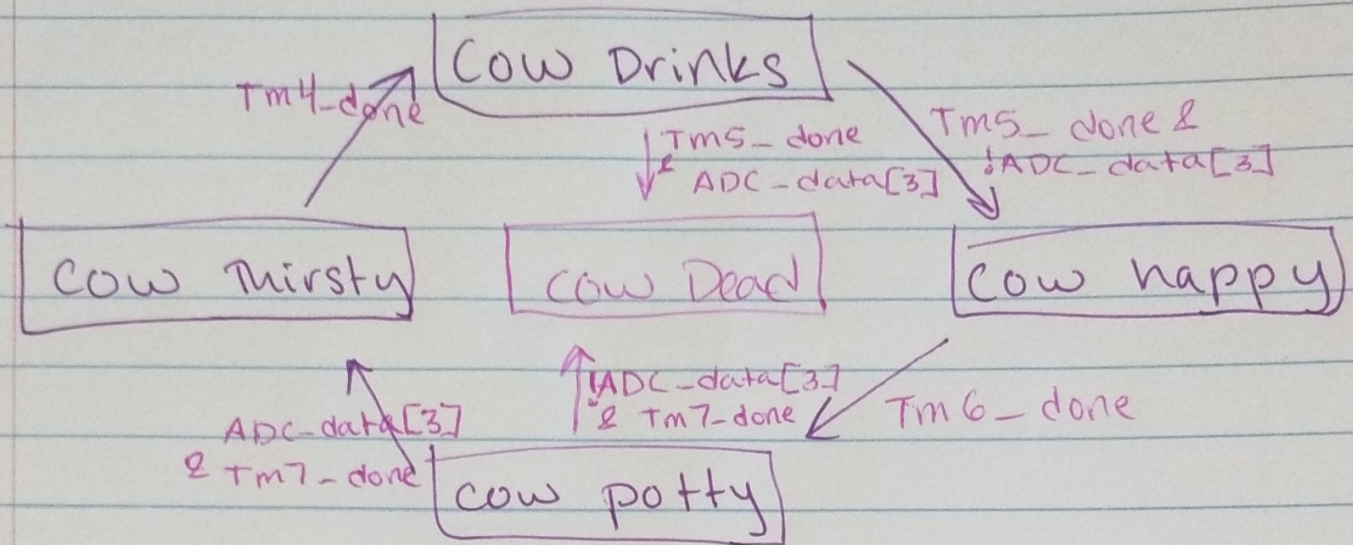 Cow Drinks
Tm4_done
Tm5_done
& ADC_data[3]
Tm5_ done &
!ADC_data[3]
Cow Thirsty
Cow Dead
Cow happy
ADC_data[3]
& Tm7_done
!ADC_data[3]
& Tm7_done
Tm6_done
Cow potty